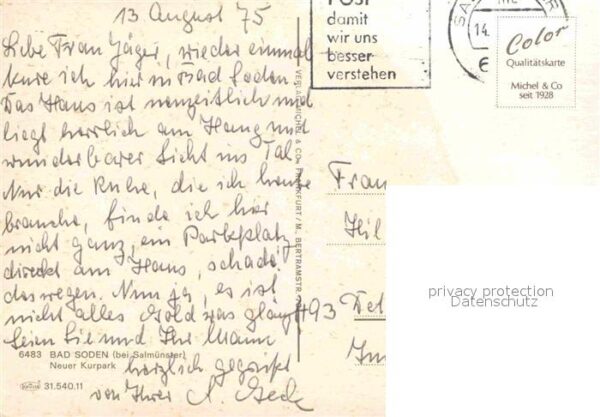 13 August 75
Liebe Frau Jäger, wieder einmal
kure ich hier in Bad Soden.
Das Haus ist neuzeitlich und
liegt herrlich am Hang mit
wunderbarer Sicht ins Tal.
Nur die Ruhe, die ich heute
brauche, finde ich hier
nicht ganz, ein Parkplatz
direkt am Haus, schade
deswegen. Nun ja, es ist
nicht alles Gold was glänzt
Seien Sie und Ihr Mann
herzlich gegrüßt
von Ihrer
6483 BAD SODEN (bei Salmünster)
Neuer Kurpark
31.540.11
VERLAG MICHEL & CO. FRANKFURT/M., BERTRAMSTR.
POST
damit
wir uns
besser
verstehen
14.
6
Color
Qualitätskarte
Michel & Co
seit 1928
Frau
493
privacy protection
Datenschutz